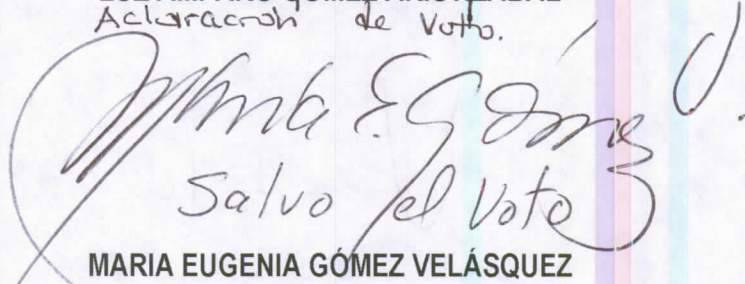 Aclaración de Voto.
Maria E. Gómez V.
Salvo el Voto
MARIA EUGENIA GÓMEZ VELÁSQUEZ